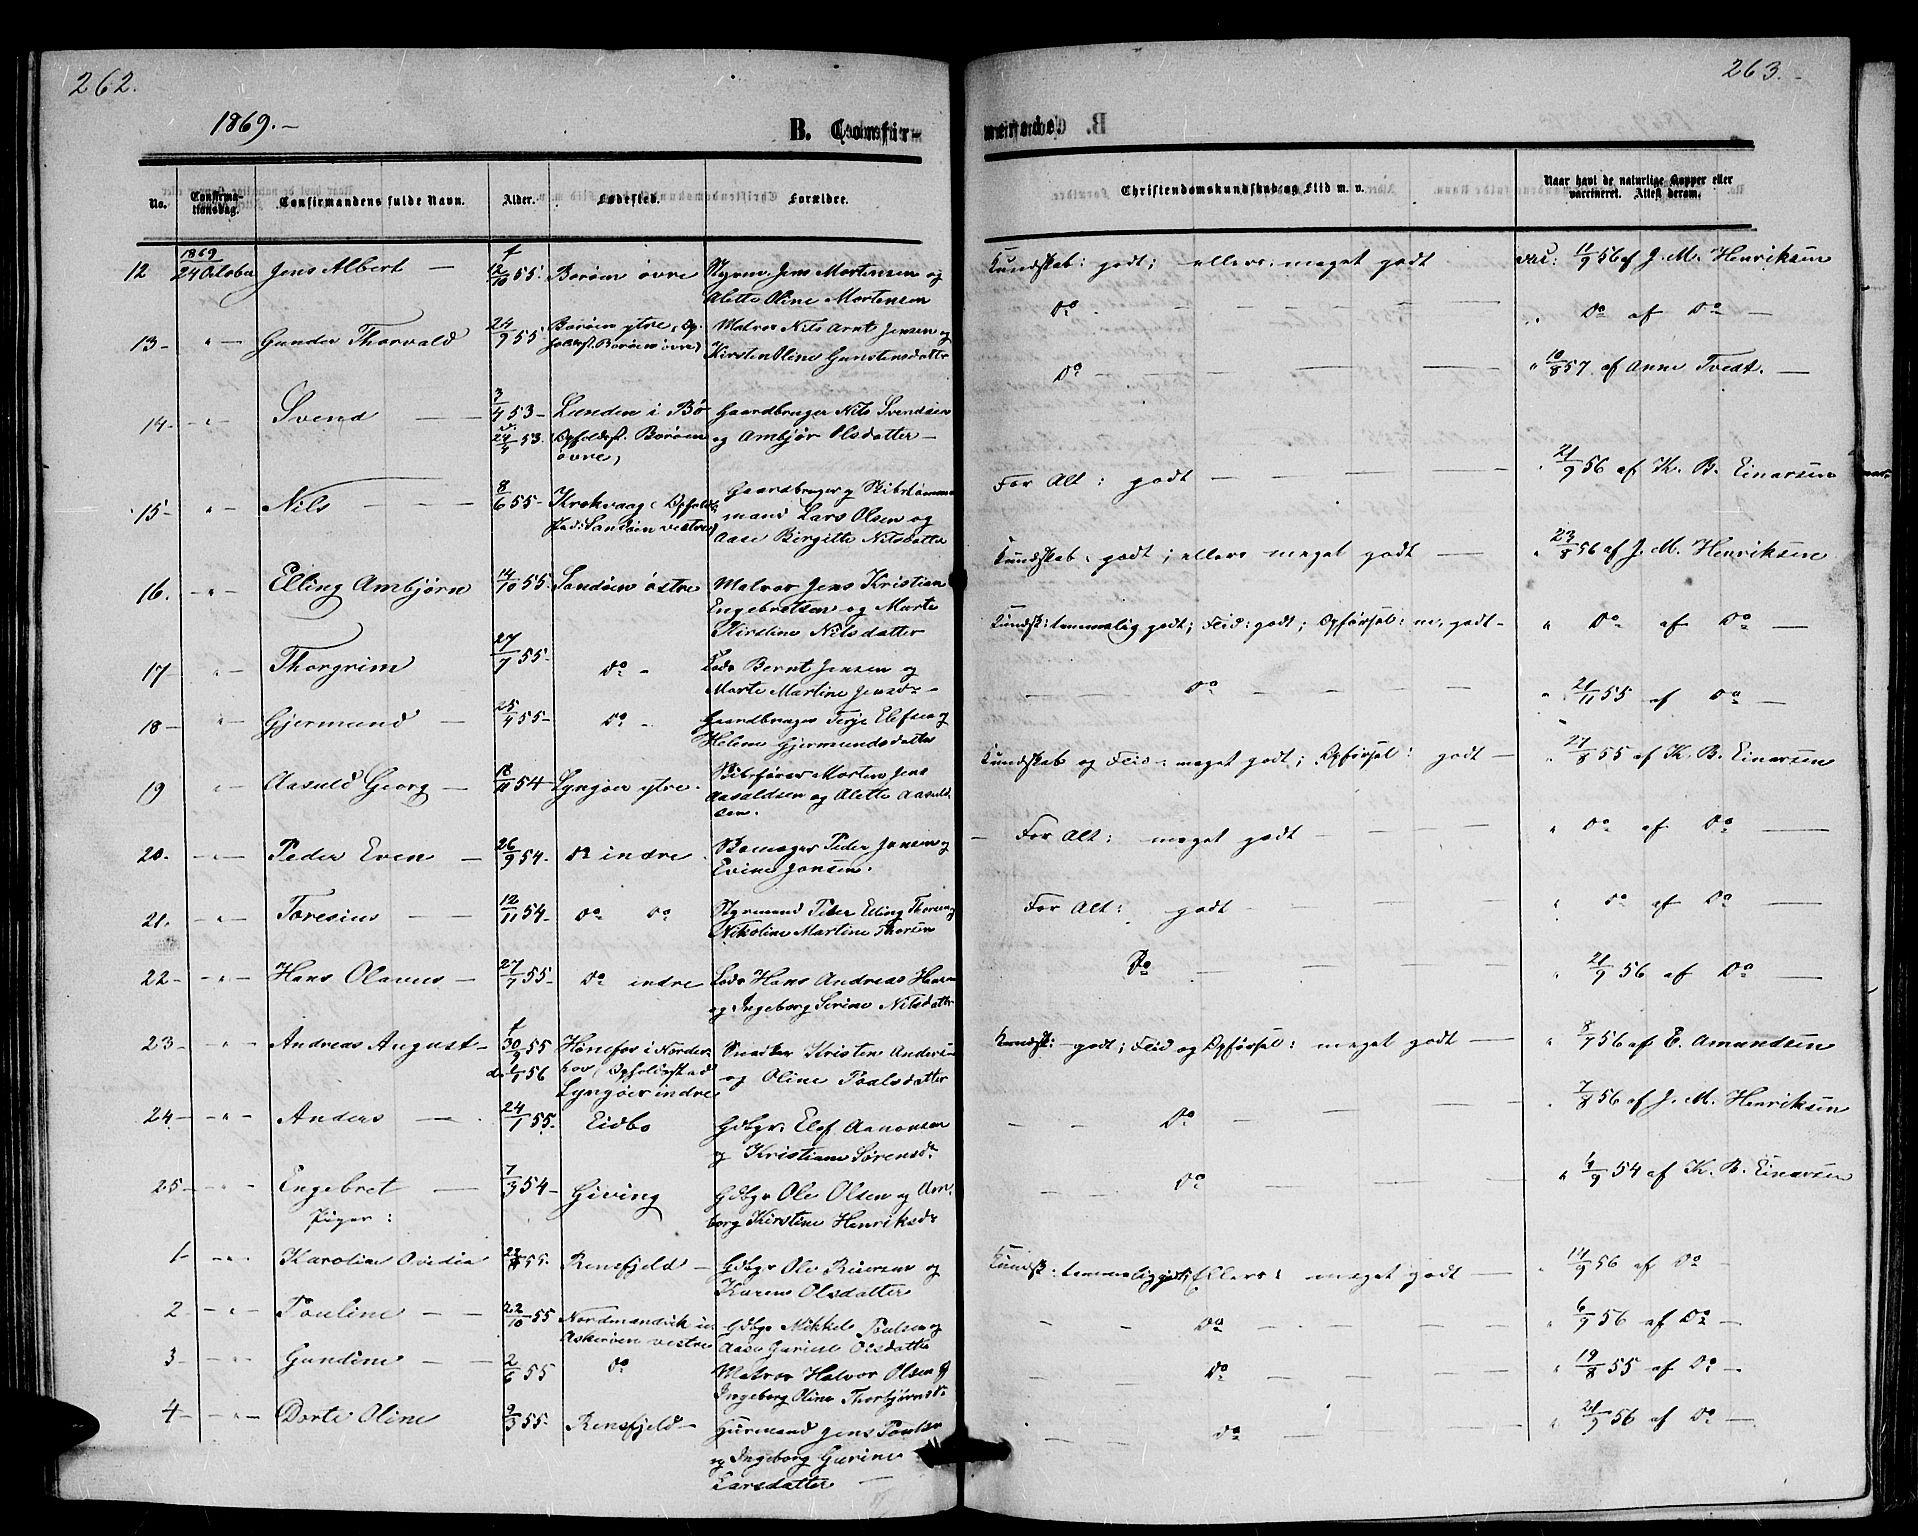 262.
1869.-
B. Confir-
No.
Confirma-
tionsdag.
Confirmandens fulde Navn.
Alder.
Fødested.
Forældre.
12 1869 24 Octobr Jens Albert — f 12/10 55. Borøen øvre Styrm. Jens Mortensen og
Alette Oline Mortensen
13- " - Gunder Thorvald 24/9 55 Borøen ytre, Op- Matros Nils Arnt Jensen og
holdsst. Borøen øvre) Kirsten Oline Gunstensdatter
14- - " - Svend — 3/4 53- Lunden i Bø Gaardbruger Nils Svendsen
d. 24/4 53. (Opholdsst. Borøen og Ambjør Olsdatter -
øvre)
15- " - Nils — 8/6 55- Krokvaag (Opholds- Gaardbruger og Skibstømmer-
sted: Sandøen vestre) mand Lars Olsen og
Aase Birgitte Nilsdatter
16. - " - Elling Ambjørn 14/10 55. Sandøen østre Matros Jens Kristian
Engebretsen og Marte
Kirstine Nilsdatter
17 - " - Thorgrim 27/7 55- Do - Lods Bernt Jensen og
Marte Martine Jensdr -
18- " - Gjermund — 25/4 55- Do - Gaardbruger Terje Elefsen og
Helene Gjermundsdatter
19 " - Aasuld Georg - 18/11 54- Lyngøer ytre. Skibsfører Morten Jens
Aasuldsen og Alette Aasuld-
sen.
20. - " - Peder Even — 26/9 54- Do indre Peder Jensen og
Evine Jensen.
21. - " - Toresius — 12/11 54- Do Do Styrmand Peder Elling Thorsen og
Nikoline Martine Thorsen
22- - " - Hans Olaves - 27/7 55- Do indre Lods Hans Andreas Hansen
og Ingeborg Serine Nilsdatter
23- - " - Andreas August - f 30/9 55 Hønefos i Norder- Snedker Kristen Anders-
hov, (Opholdssted og Oline Poulsdatter
Lyngøer indre
24- - " - Anders — 24/1 55. Eidbo Gdbgr. Elef Aanonsen
og Kristiane Sørensdr
25- - " - Engebret — 7/3 54- Giving Gdbgr Ole Olsen og Am-
borg Kirstine Henriksdr
Piger:
1- - " - Karoline Ovidia 55. Rensfjeld - Gdbgr Ole Reiersen og
Karen Olsdatter
2 - " - Pouline — 22/10 55 Nordmandvik in Gdbgr Mikkel Poulsen og
Askerøen vestre Aase Gurine Olsdatter
3 - " - Gundine — 2/6 55 Do Matros Halvor Olsen og
Ingeborg Oline Thorbjørnsdr
4- - " - Dorte Oline 2/3 55. Rensfjeld- Huusmand Jens Poulsen
og Ingeborg Gurine
Larsdatter —
263.-
merede
Christendomskundskab og Flid m. v.
Naar havt de naturlige Kopper eller
vaccineret. Attest derom.
Kundskab: godt; ellers: meget godt vac: 11/9 56 af J. M. Henriksen
Do — " Do af Do —
Do — " 10/8 57 af Anne Tvedt. —
For Alt: godt — " 21/9 56 af K. B. Einarsen
Kundskab: godt; ellers meget godt — " 23/8 56 af J. M. Henriksen
Kundsk: temmelig godt; Flid: godt; Opførsel: m. godt- " Do af Do —
Do — " 21/11 55 af Do —
Kundskab og Flid: meget godt; Opførsel: godt — " 27/8 55 af K. B. Einarsen
For Alt: meget godt — " Do af Do —
For Alt: godt — " Do af Do —
Do — " 21/9 56 af Do —
Kundsk: godt; Flid og Opførsel: meget godt — " 8/7 56 af E. Amundsen
Do — " 7/8 56 af J. M. Henriksen
Do — " 4/9 54 af K. B. Einarsen
Kundsk: temmelig godt; Ellers: meget godt — " 14/9 56 af Do -
Do — " 6/9 56 af Do -
Do — " 19/8 55 af Do -
Do — " 21/9 56 af Do -